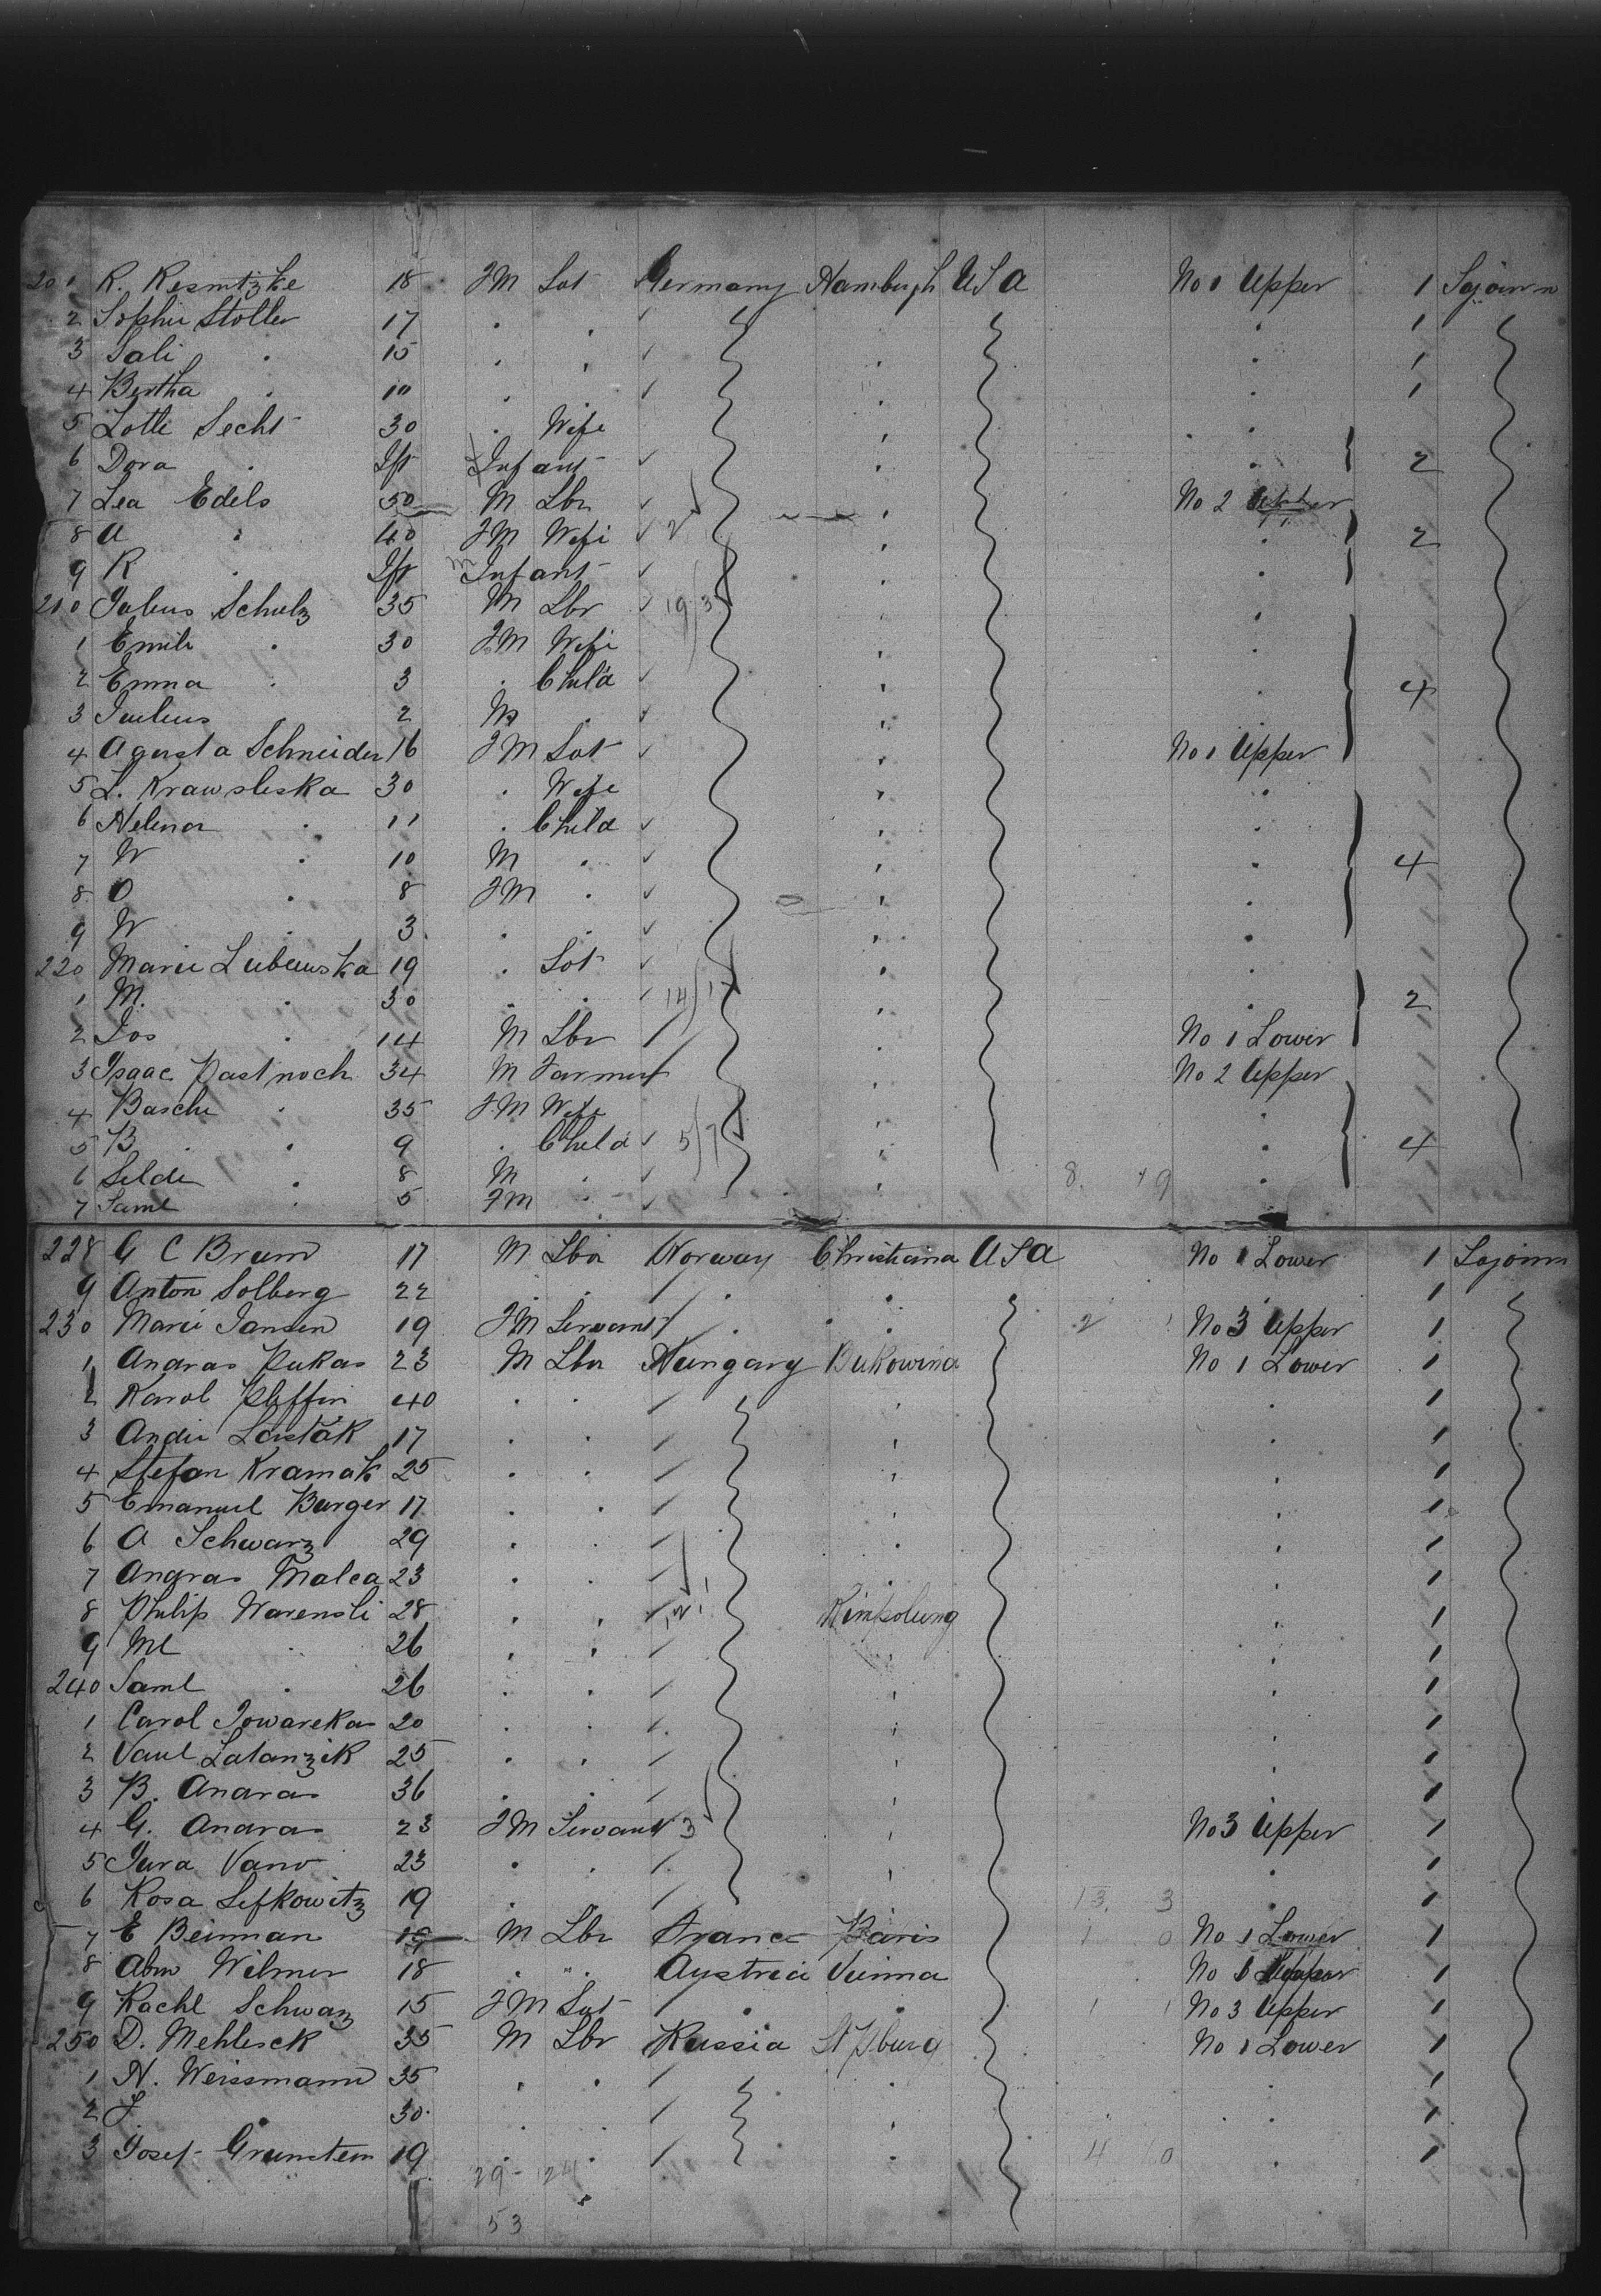 201 R. Resmitzke 18 FM Sot Germany Hamburgh USA No 1 Upper 1 Sojourn
2 Sophie Stoller 17 1
3 Sali 15 1
4 Bertha 10 1
5 Lotte Secht 30 Wife
6 Dora Ift Infant 2
7 Lea Edels 50 M Lbr No 2 Upper
8 A 40 FM Wife 2 2
9 R Ift Infant
210 Julius Schulz 35 M Lbr 19/3
1 Emile 30 FM Wife
2 Emma 3 Child 4
3 Julius 2 M
4 Agusta Schneider 16 FM Sot No 1 Upper
5 L. Krawsleska 30 Wife
6 Helena 11 Child
7 W 10 M 4
8 O 8 FM
9 W 3
220 Marie Lubauska 19 Sot
1 M. 30 14/1 2
2 Jos 14 M Lbr No 1 Lower
3 Isaac Pastnoch 34 M Farmer No 2 Upper
4 Basche 35 FM Wife
5 B 9 Child 5/7 4
6 Selde 8 M 8 49
7 Saml 5 FM
228 G C Brum 17 M Lbr Norway Christiana USA No 1 Lower 1 Sojourn
9 Anton Solberg 22 1
230 Marie Jansen 19 FM Servant 2 1 No 3 Upper 1
1 Andras Pukas 23 M Lbr Hungary Bukowina No 1 Lower 1
2 Karol Pleffin 40 1
3 Andre Laistak 17 1
4 Stefan Kramak 25 1
5 Emanuel Burger 17 1
6 A Schwarz 29 1
7 Andras Malca 23 1
8 Philip Warensli 28 Kimpolung 1
9 Ml 26 1
240 Saml 26 1
1 Carol Jowareka 20 1
2 Vaul Latanzik 25 1
3 B. Andras 36 1
4 G. Andras 23 FM Servant 3 No 3 Upper 1
5 Jura Vano 23 1
6 Rosa Lefkowitz 19 13 3 1
7 E Beinman 19 M Lbr France Paris 1 0 No 1 Lower 1
8 Abm Wilmer 18 Austria Vienna No 1 1
9 Rachl Schwarz 15 FM Sot 1 1 No 3 Upper 1
250 D. Mehlesck 35 M Lbr Russia St Pburg No 1 Lower 1
1 N. Weissmann 35 1
2 J 30 1
3 Josef Grunstein 19 4 0 1
29 - 24
53